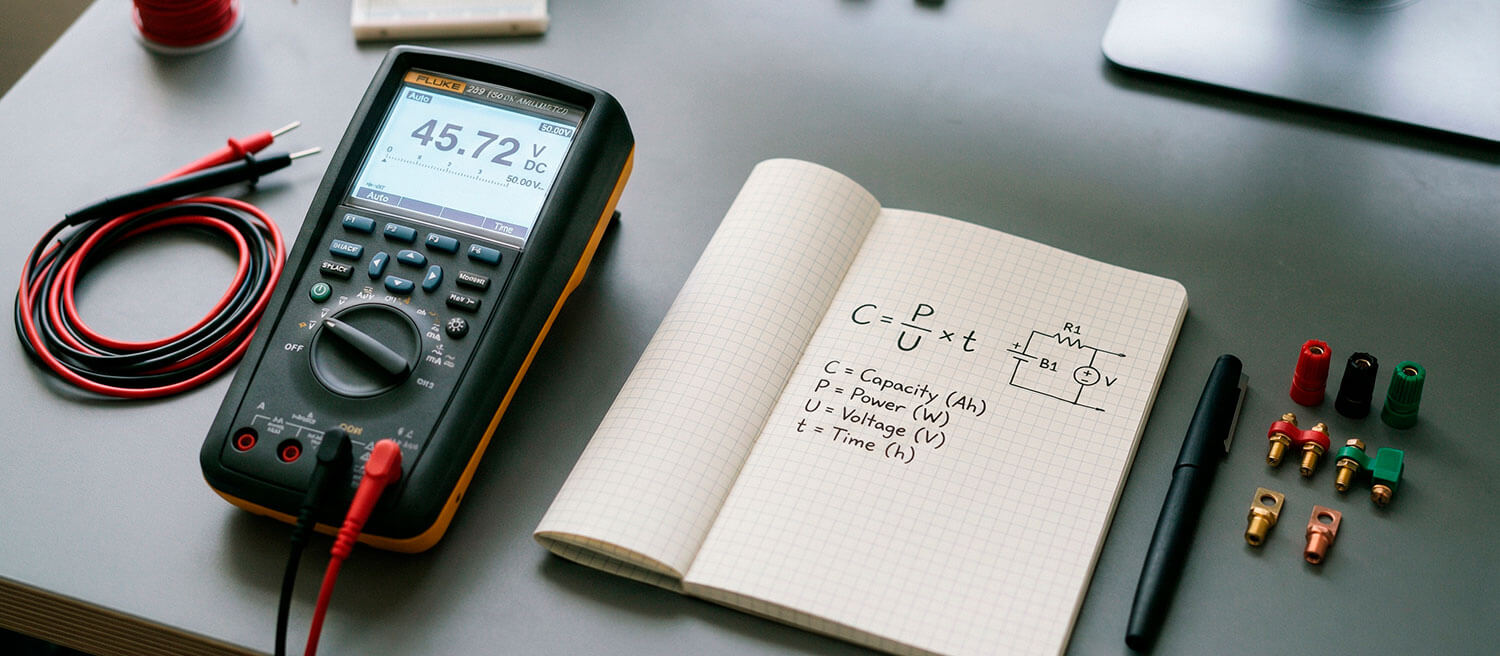 FLUKE
289
Auto
50.00V
45.72 V
DC
0
50.00V
Auto
Time
F1 F2 F3 F4
OFF
A
C = P/U × t
C = Capacity (Ah)
P = Power (W)
U = Voltage (V)
t = Time (h)
R1
+ B1
+ V